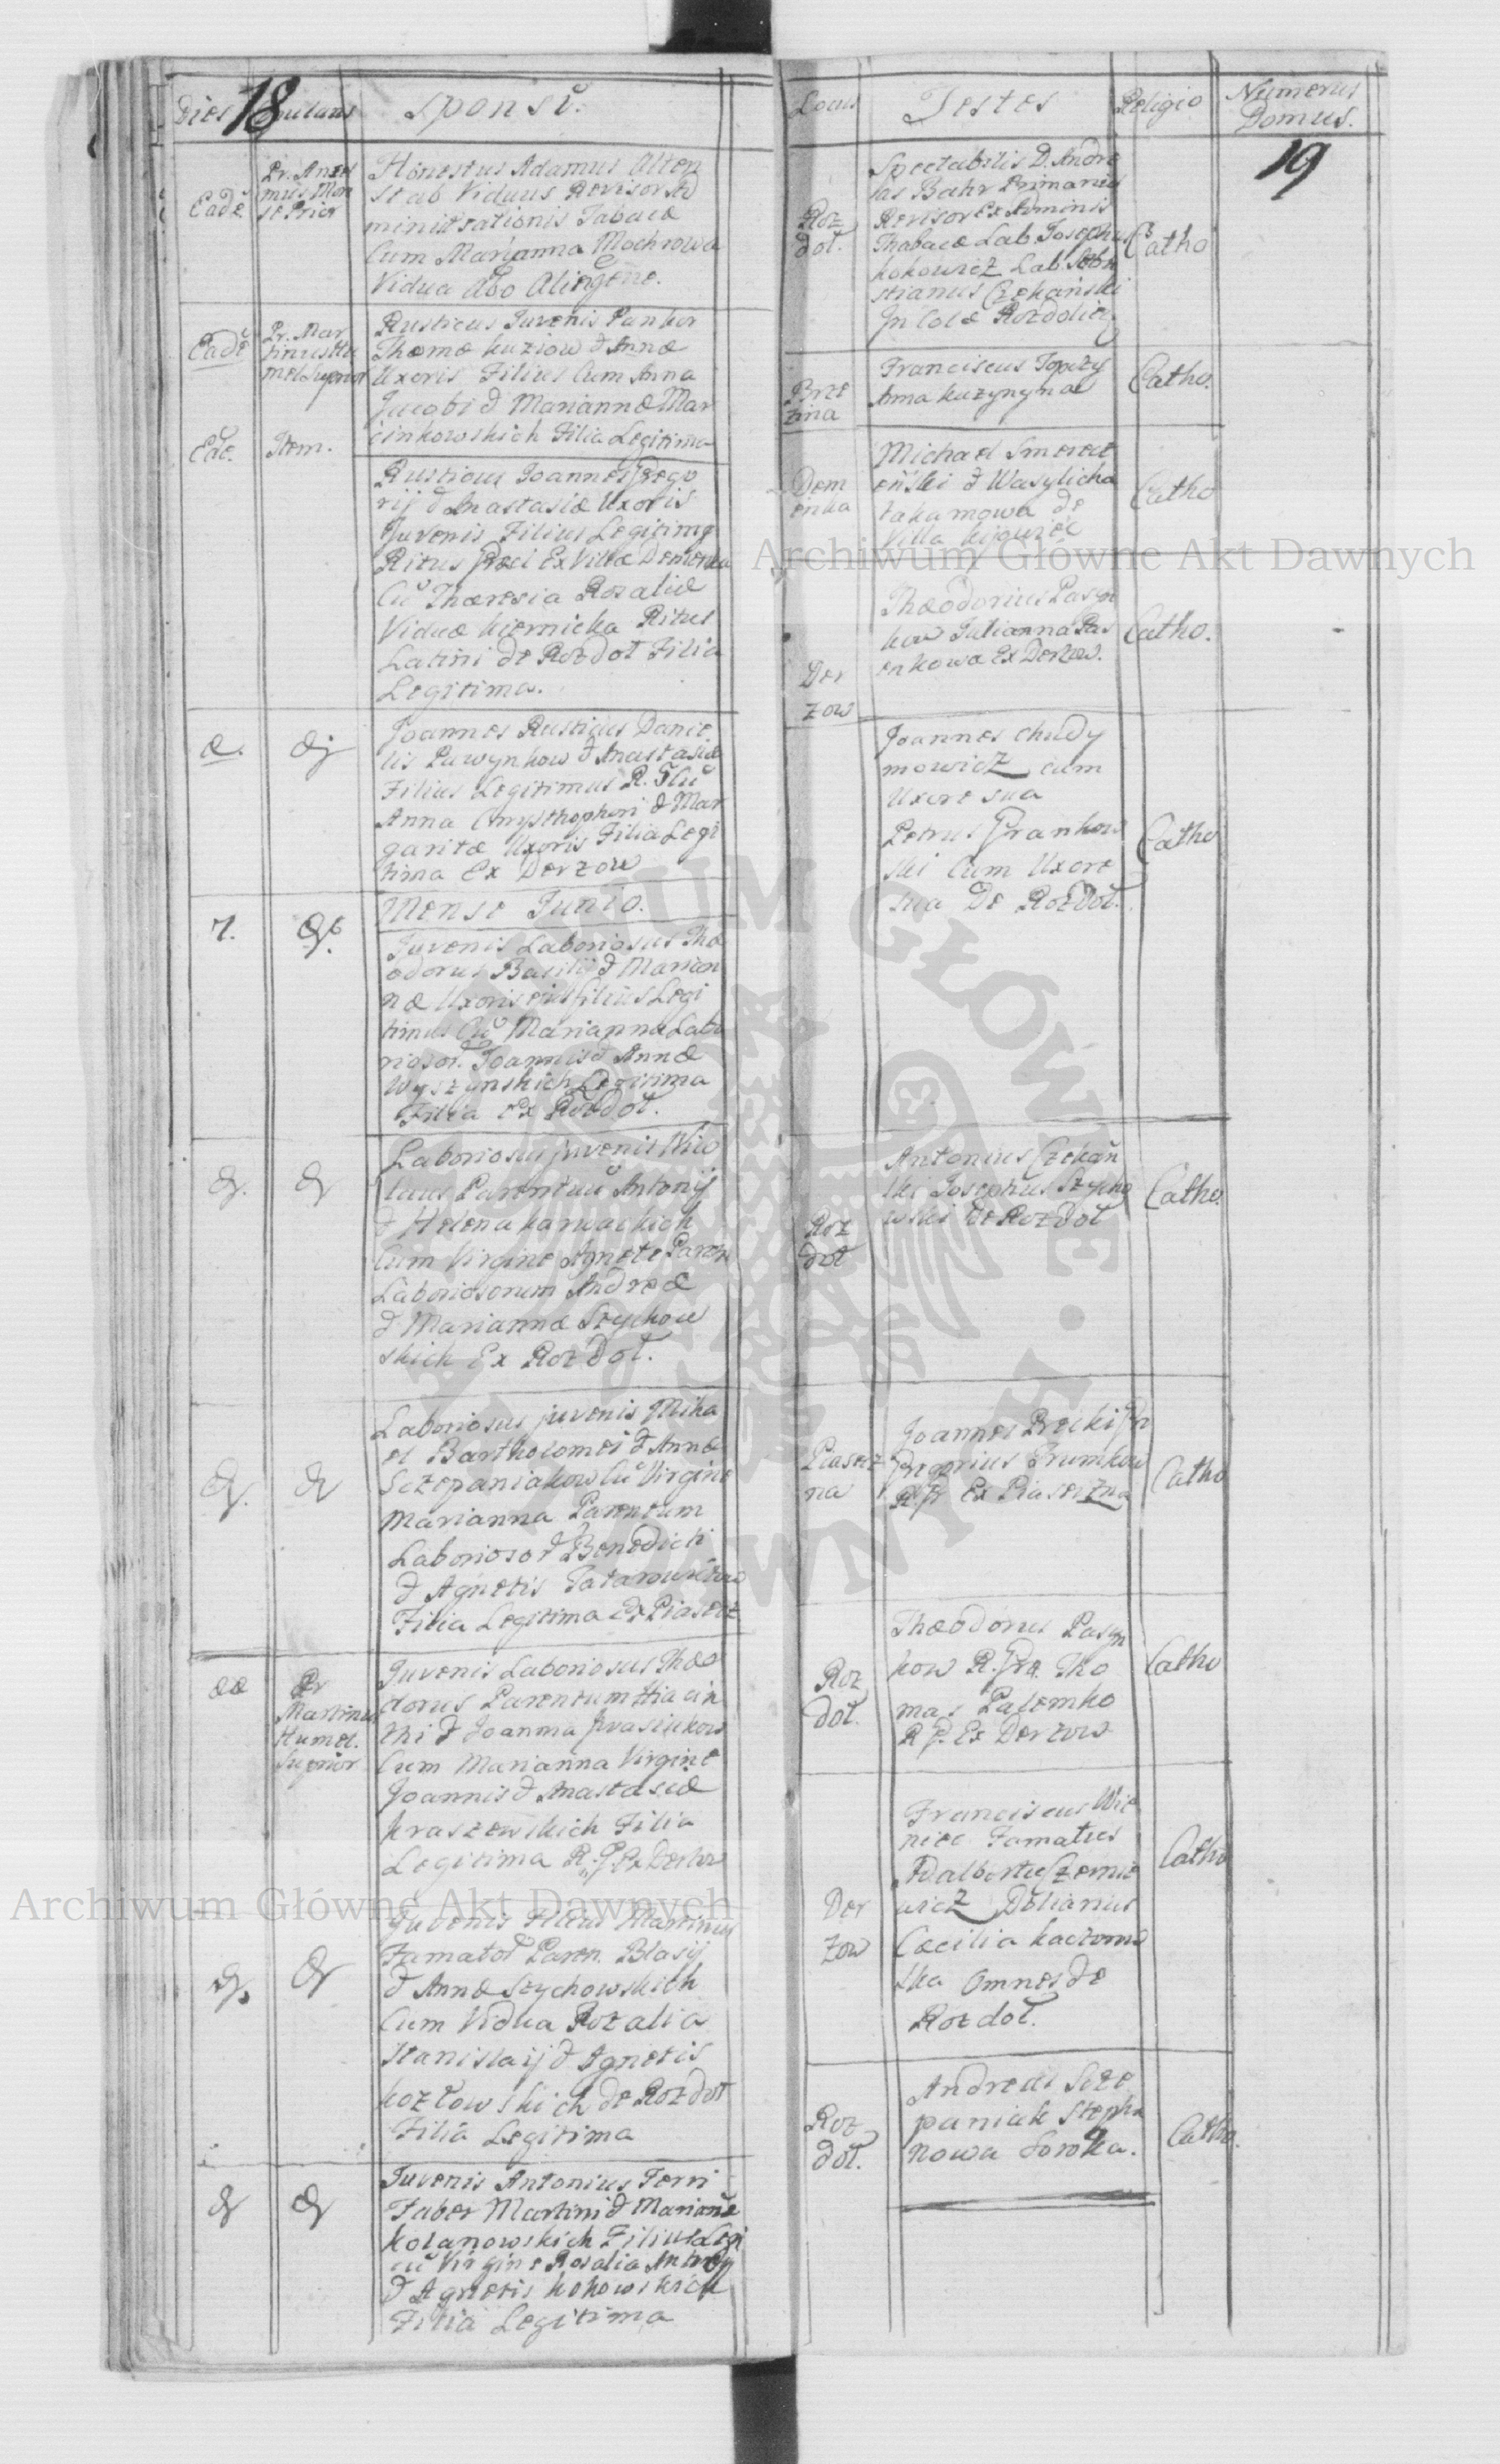 Dies
18
Sponsi.
Eadē
Pr. Ansel
mus Mon
se Prior
Honestus Adamus Alten
stab Viduus Revisor Ad
ministrationis Tabacæ
Cum Marianna Mochrowa
Vidua
Eadē
Pr. Mar
tinus Hu
mel Suprior
Rusticus Juvenis Pankor
Thomæ Kuziow & Annæ
Uxoris Filius Cum Anna
Jacobi & Mariannæ Mar
cinkowskich Filia Legitima
Eāde.
Item.
Rusticus Joannes Grego
rij & Anastasiæ Uxoris
Juvenis Filius Legitimq
Ritus Græci Ex Villæ Demenka
Cū Thæresia Rozaliæ
Viduæ Kiernicka Ritus
Latini de Rozdoł Filia
Legitima.
Joannes Rusticus Danie
lis Pawynkow & Anastasiæ
Filius Legitimus R. G Cū
Anna Chrysthophori & Mar
garitæ Uxoris Filia Legi
tima Ex Derzow
7.
Mense Junio.
Juvenis Laboriosus The
odorus Basilij & Marian
næ Uxoris ejus filius Legi
timus Cū Marianna Labo
riosor. Joannis & Annæ
Wyszynskich Legitima
Filia Ex Rozdoł.
Laboriosus juvenis Nico
laus Parentuū Antonij
& Helena Karwackich
Cum Virgine Agnete Paren
Laboriosorum Andreæ
& Mariannæ Szychow
skich Ex Rozdoł.
Laboriosus juvenis Micha
el Bartholomei & Annæ
Sczepaniakow Cū Virgine
Marianna Parentum
Laborioso & Benedicti
& Agnetis
Filia Legitima Ex Piasecz
Pr
Martinus
Humel.
Suprior
Juvenis Laboriosus Theo
dorus Parentum Hiacin
thi & Joanna Iwasiukow
Cum Marianna Virgine
Joannis & Anastasiæ
Kraszewskich Filia
Legitima R. G. Ex Derzow
Juvenis Filius Martinus
Famatoŕ Paren. Blasij
& Annæ Szychowskich
Cum Vidua Rozalia
Stanislaij & Agnetis
Kozłowskich de Rozdoł
Filia Legitima
Juvenis Antonius Ferri
Faber Martini & Mariañæ
Kolanowskich Filius Legi
cū Virgine Rosalia Antonij
& Agnetis Kokowskich
Filia Legitima
Locus
Testes
Religio
Numerus
Domus.
19
Roz
doł.
Spectabilis D. Andre
as Bahr Primarius
Revisor Ex Adminis
Thabacæ Lab. Josephus
Kokowicz Lab. Seba
stianus Czekański
Incolæ Rozdolien
Catho
Brze
zina
Franciscus Topazy
Anna Kuzynyna
Catho.
Dem
enka
Michael Smerecz
eński & Wasylicha
Iakamowa de
Villa Kijowiec
Catho
Der
zow
Theodorius Pasyn
kow Julianna Pas
enkowa Ex Derzow.
Catho.
Joannes Chudy
mowicz cum
Uxore sua
Petrus Grankow
ski Cum Uxore
sua De Rozdoł.
Catho
Roz
doł
Antonius Czekań
ski Josephus Szycho
wski de Rozdoł
Catho.
Piasecz
na
Joannes Precki
Gregorius Trumkow
R G Ex Piaseczna
Catho
Roz
doł.
Theodorus Pasyn
kow R. Græ. Tho
mas Palemko
R G. Ex Derzow
Catho
Der
zow
Franciscus Wie
niec Famatus
Adalbertus Czernie
wicz Dolianus
Cæcilia Kaczorow
ska Omnes de
Rozdoł.
Catho
Roz
doł.
Andreas Scze
paniak Stepha
nowa Sowka.
Catho.
Archiwum Główne Akt Dawnych
Archiwum Główne Akt Dawnych